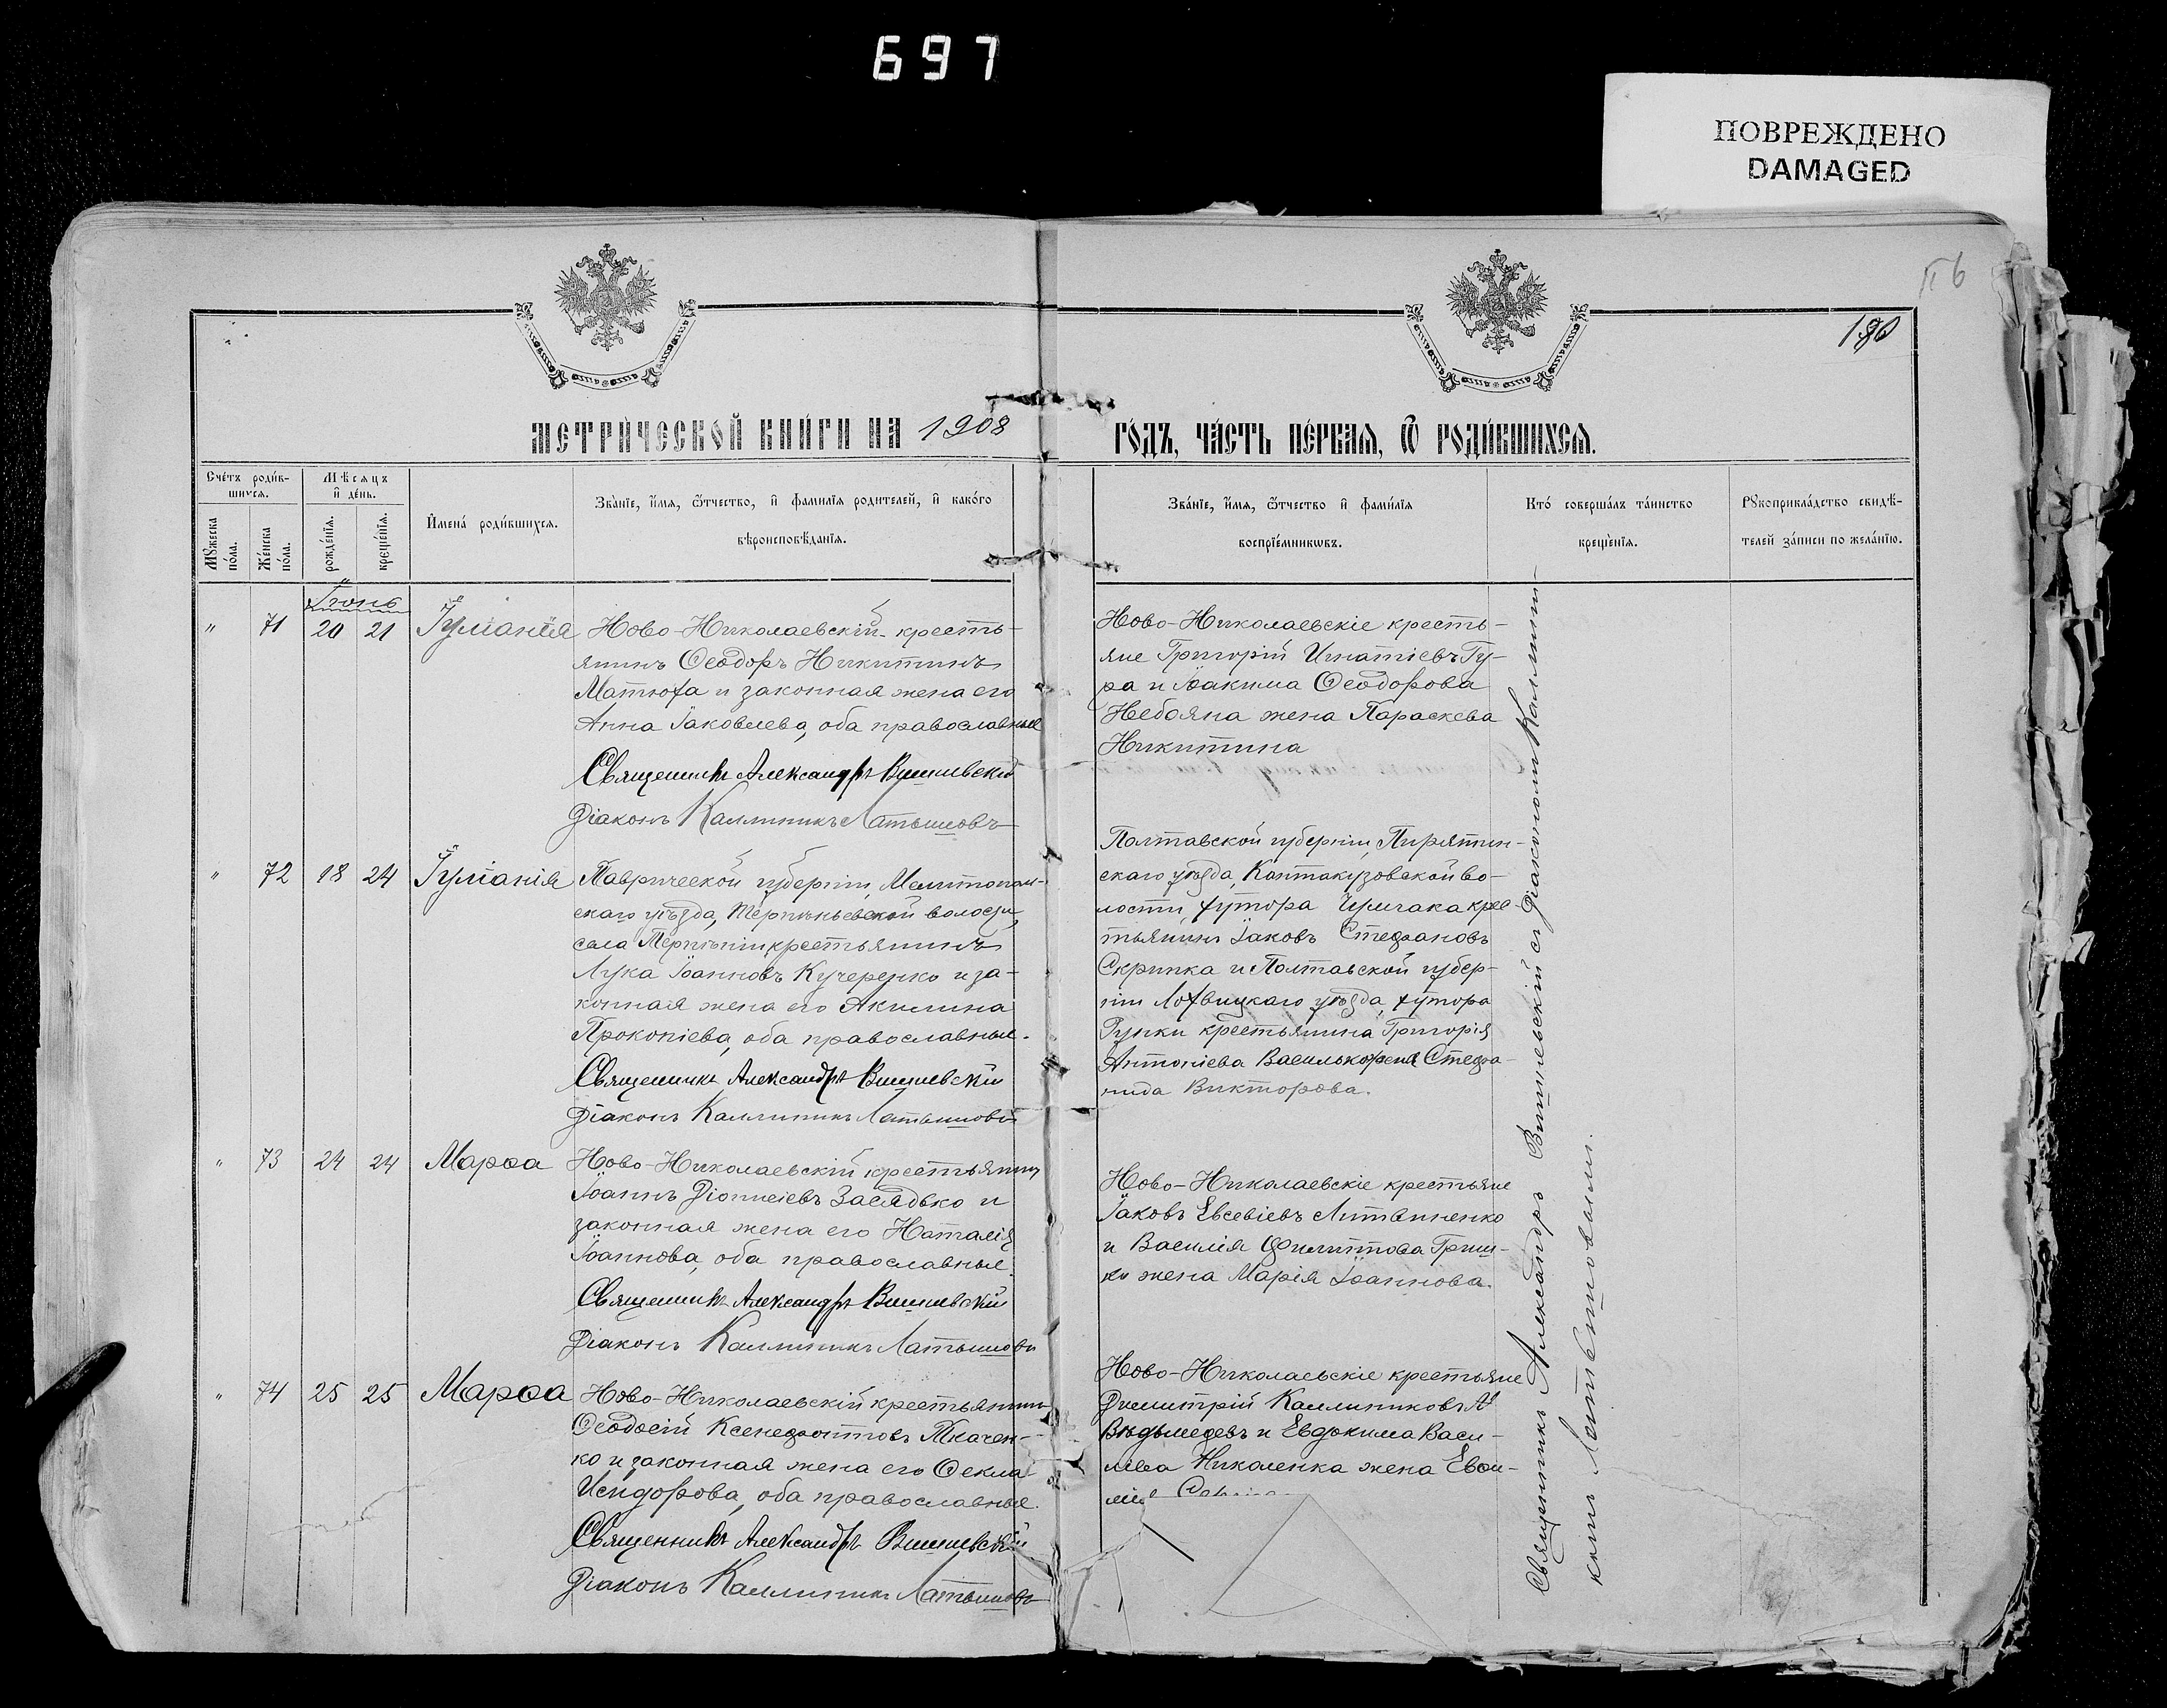 697
ПОВРЕЖДЕНО
DAMAGED
180
МЕТРИ́ЧЕСКОЙ КНИ́ГИ НА 1908
ГО́ДЪ, ЧА́СТЬ ПЕ́РВАЯ, Ѽ РОДИ́ВШИХСЯ.
Сче́тъ роди́в-
шихся.
Мѣсяцъ
и҆ де́нь.
Мꙋжеска по́ла.
Же́нска по́ла.
рожде́нїѧ.
креще́нїѧ.
И҆мена́ роди́вшихсѧ.
Зва́нїе, и҆́мѧ, ѻ҆́тчество, и҆ фами́лїѧ роди́телей, и҆ како́го
вѣроисповѣ́данїѧ.
Зва́нїе, и҆́мѧ, ѻ҆́тчество и҆ фами́лїѧ
воспрїе́мникѡвъ.
Кто̀ соверша́лъ та́инство
креще́нїѧ.
Рꙋкоприкла́дство свидѣ́-
телей за́писи по жела́нїю.
Іюнь
" 71 20 21 Іуліанія
Ново-Николаевскій кресть-
янинъ Ѳеодоръ Никитинъ
Матюха и законная жена его
Анна Іаковлева, оба православные
Священникъ Александръ Вишневскій
Діаконъ Каллиникъ Латышовъ
Ново-Николаевскіе кресть-
яне Григорій Игнатіевъ Гу-
ра и Іоакима Ѳеодорова
Небояна жена Параскева
Никитина
" 72 18 24 Іуліанія
Таврической губерніи, Мелитополь-
скаго уѣзда, Терпѣньевской волости,
села Терпѣнія крестьянинъ
Лука Іоанновъ Кучеренко и за-
конная жена его Акилина
Прокопіева, оба православные.
Священникъ Александръ Вишневскій
Діаконъ Каллиникъ Латышовъ
Полтавской губерніи, Пирятин-
скаго уѣзда, Кантакузовской во-
лости, хутора крес-
тьянинъ Іаковъ Стефановъ
Скрипка и Полтавской губер-
ніи Лохвицкаго уѣзда, хутора
крестьянина Григорія
Антоніева Стефа-
нида Викторова.
" 73 24 24 Марѳа
Ново-Николаевскій крестьянинъ
Іоаннъ Діонисіевъ Засядько и
законная жена его Наталія
Іоаннова, оба православные.
Священникъ Александръ Вишневскій
Діаконъ Каллиникъ Латышовъ
Ново-Николаевскіе крестьяне
Іаковъ Евсевіевъ Литвиненко
и Василія Филиппова Гриш-
ко жена Марія Іоаннова.
" 74 25 25 Марѳа
Ново-Николаевскій крестьянинъ
Ѳеодосій Ксенофонтовъ Ткачен-
ко и законная жена его Ѳекла
Исидорова, оба православные.
Священникъ Александръ Вишневскій
Діаконъ Каллиникъ Латышовъ
Ново-Николаевскіе крестьяне
Димитрій Каллиниковъ
и Евдокима Васи-
ліева Николенка жена Евѳи-
мія
Священникъ Александръ Вишневскій съ Діакономъ Каллини-
комъ Латышовымъ.